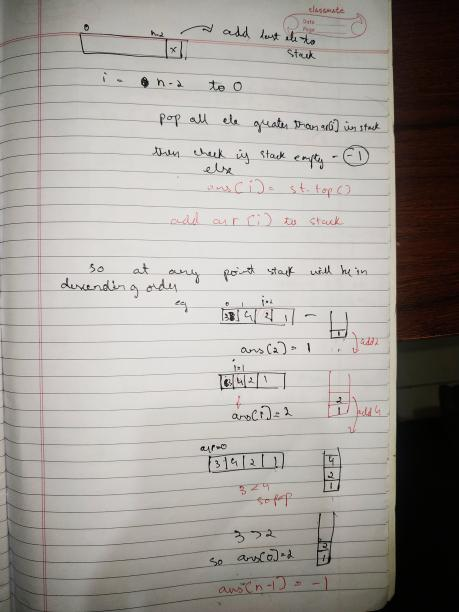 classmate
Date
Page
0 n-2 → add last ele to
x stack
i = n-2 to 0
pop all ele greater than arr[i] in stack
then check if stack empty - -1
else
ans[i] = st.top()
add arr[i] to stack
so at any point stack will be in
descending order
eg
0 1 i=2
3 4 2 1 -
1
add 2
ans[2] = 1
i=1
3 4 2 1
2
1
add 4
ans[i] = 2
3 4 2 1
4
2
1
3 < 4
so pop
3 > 2
2
1
so ans[0] = 2
ans[n-1] = -1